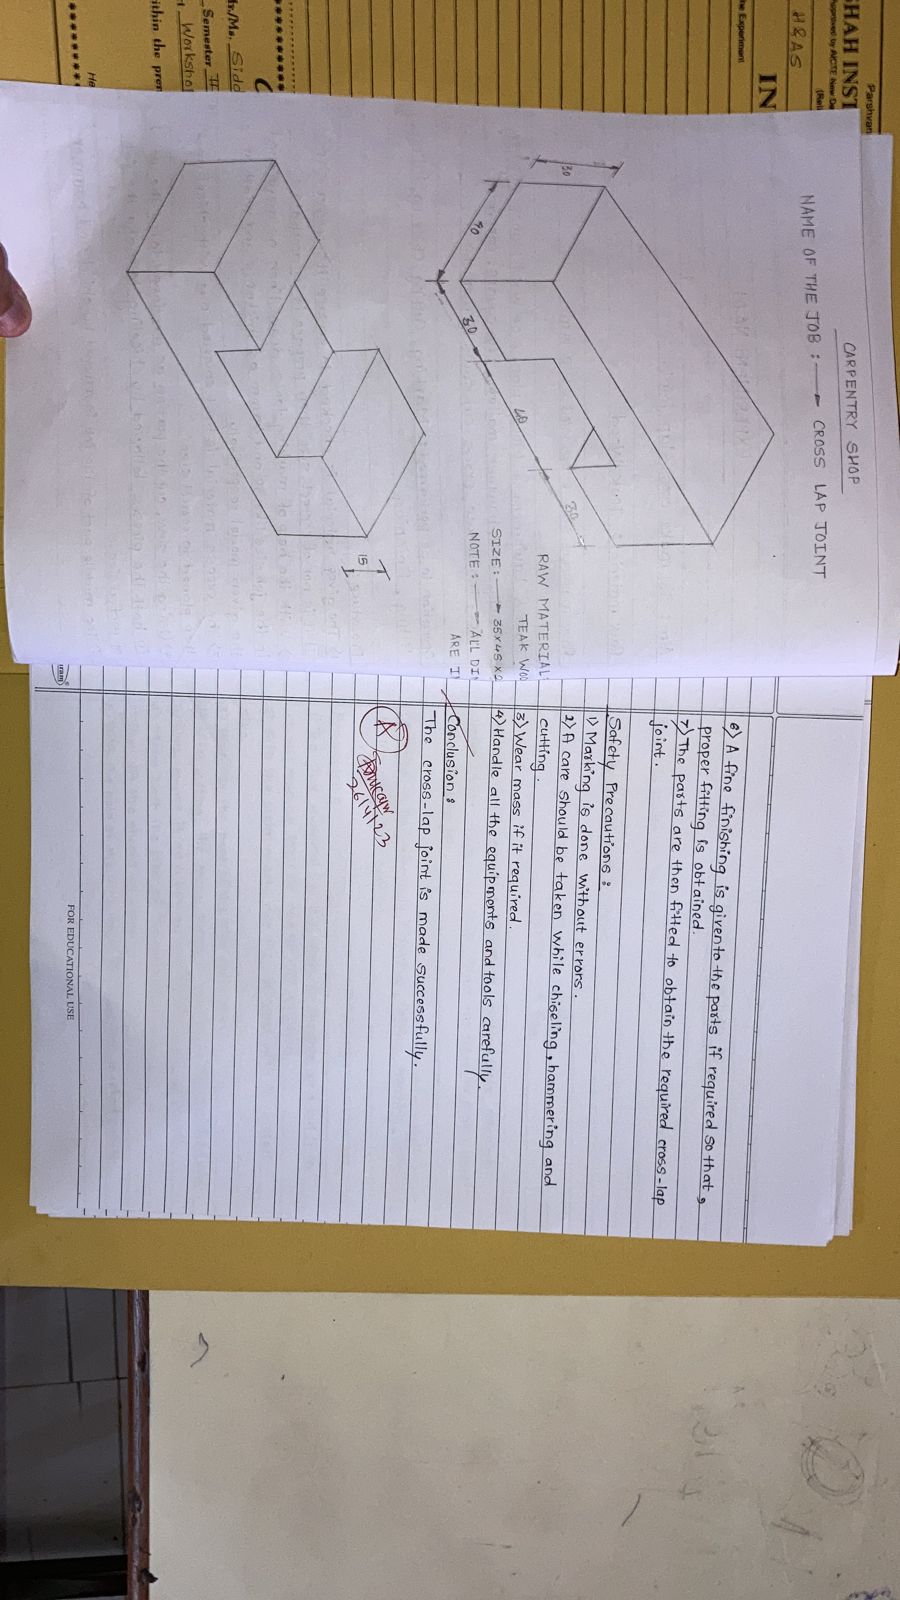 Parshvan
SHAH INST
Approved by AICTE New De
(Reli
H&AS
he Experiment
IN
C
Ir./Ms. Sidd
Semester II
t Worksho
ithin the prem
He
CARPENTRY SHOP
NAME OF THE JOB : CROSS LAP JOINT
30
40
30
40
30
15
RAW MATERIAL
TEAK WOO
SIZE : 35x45x2
NOTE : ALL DI
ARE I
6) A fine finishing is given to the parts if required so that ,
proper fitting is obtained.
7) The parts are then fitted to obtain the required cross-lap
joint.
Safety Precautions :
1) Marking is done without errors.
2) A care should be taken while chiseling, hammering and
cutting.
3) Wear mass if it required.
4) Handle all the equipments and tools carefully.
Conclusion :
The cross-lap joint is made successfully.
A
26/4/23
ram)
FOR EDUCATIONAL USE